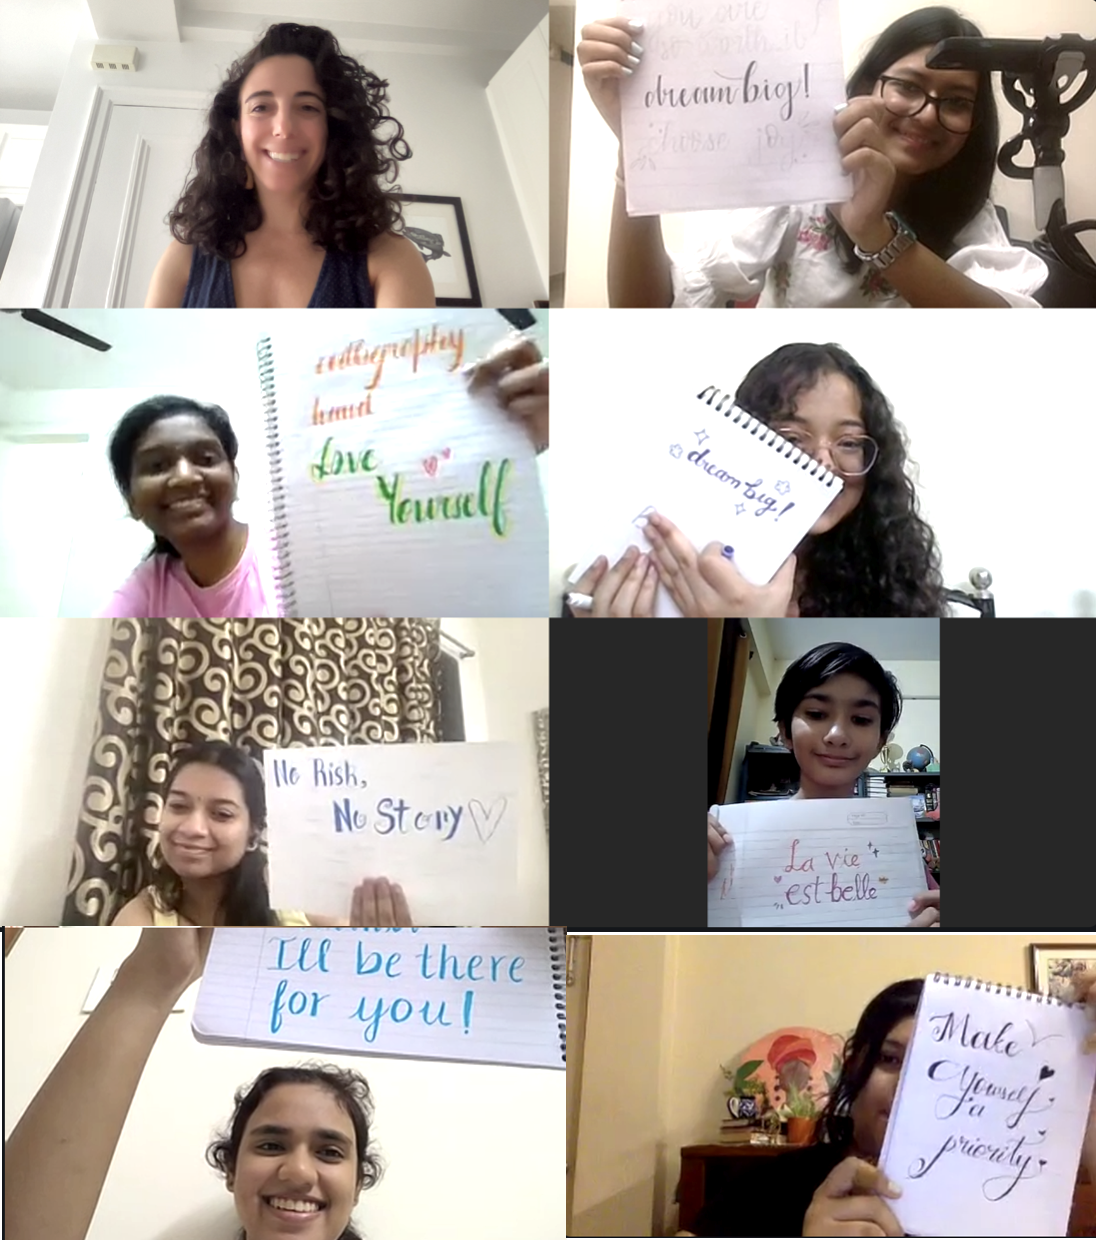 you are
so worth it
dream big!
choose joy
calligraphy
hand
Love
Yourself
dream big!
No Risk,
No Story
La vie
est belle
I'll be there
for you!
Make
Yourself
a
priority